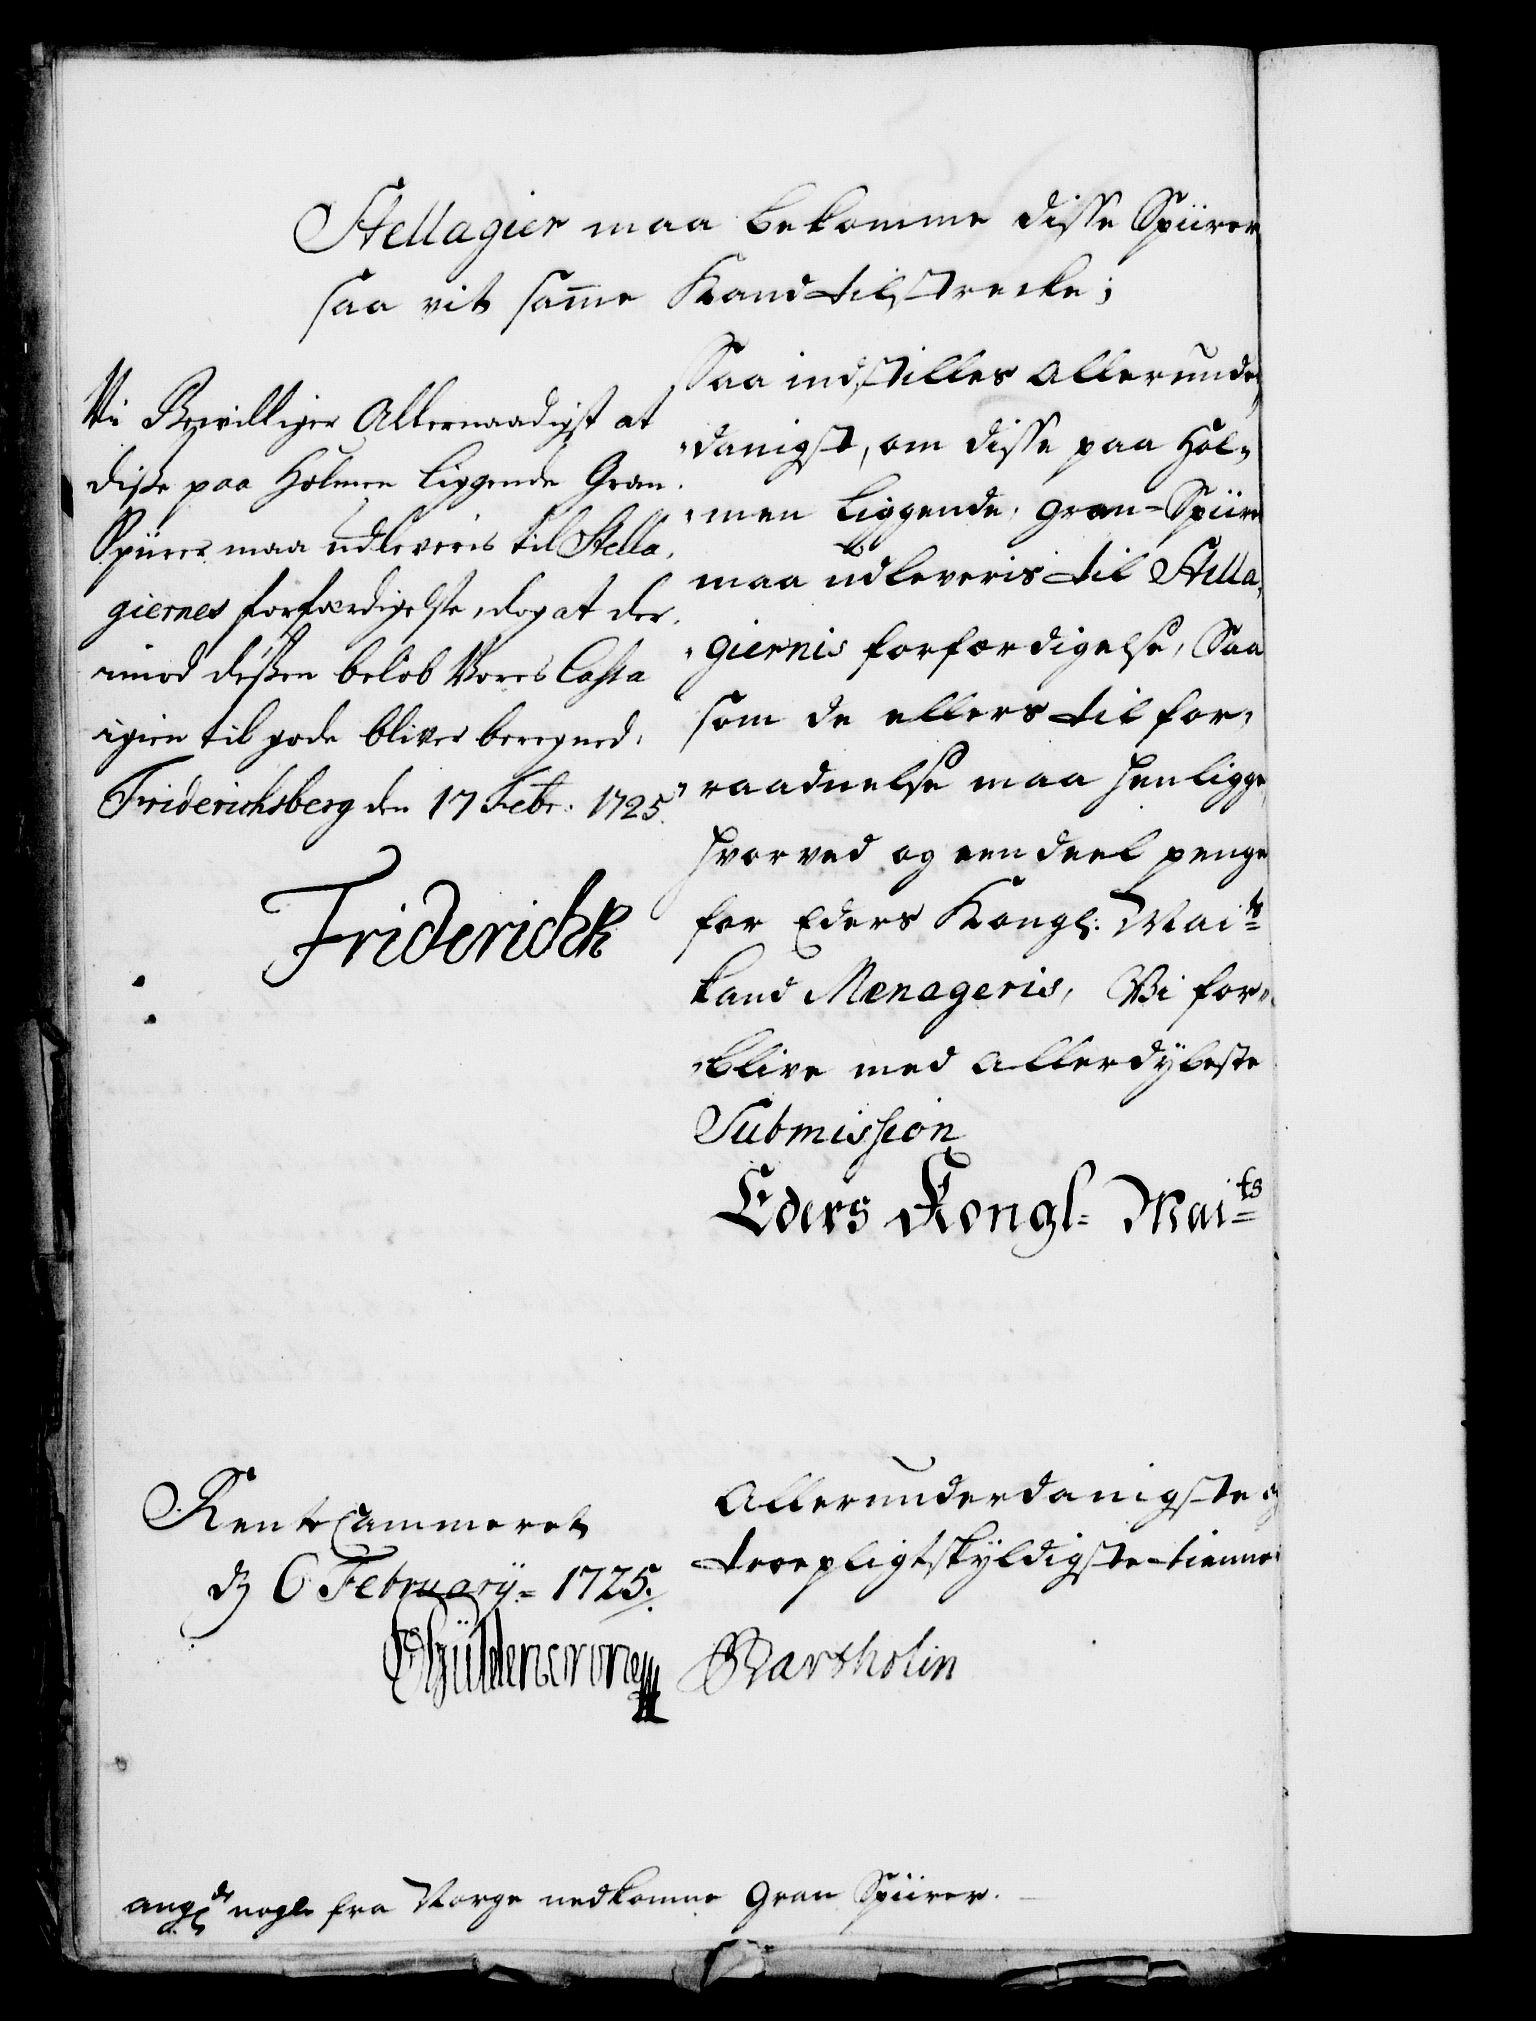 Stellagier maa bekomme disse Spiirer
saa vit samme Kand tilstrecke;
Vi Bevilliger Allernaadigst at
disse paa Holmen liggende Gran
Spiirer maa udleveris til Stella,
giernes forfærdigelse, dog at der,
imod dessen beløb Vores Cassa
igien til gode bliver beregned.
Friderichsberg den 17 Febr: 1725.
Friderich R
Saa indstilles allerunder,,
,,danigst, om disse paa Hol,,
,,men liggende, gran-Spiire
maa udleveris til Stella,
,,giernis forfærdigelse, Saa
som de ellers til for,,
,,raadnelse maa henligge,
hvorved og een deel penge
for Eders Kongl: Maits
kand Menageris, Vi for,,
,,blive med allerdybeste
Submission
Eders Kongl= Maits
RenteCammeret
d 6 February= 1725.
Allerunderdanigste og
troepligtskyldigste tienner
Güldencrone
Bartholin
angde nogle fra Norge nedkomne Gran Spiirer.